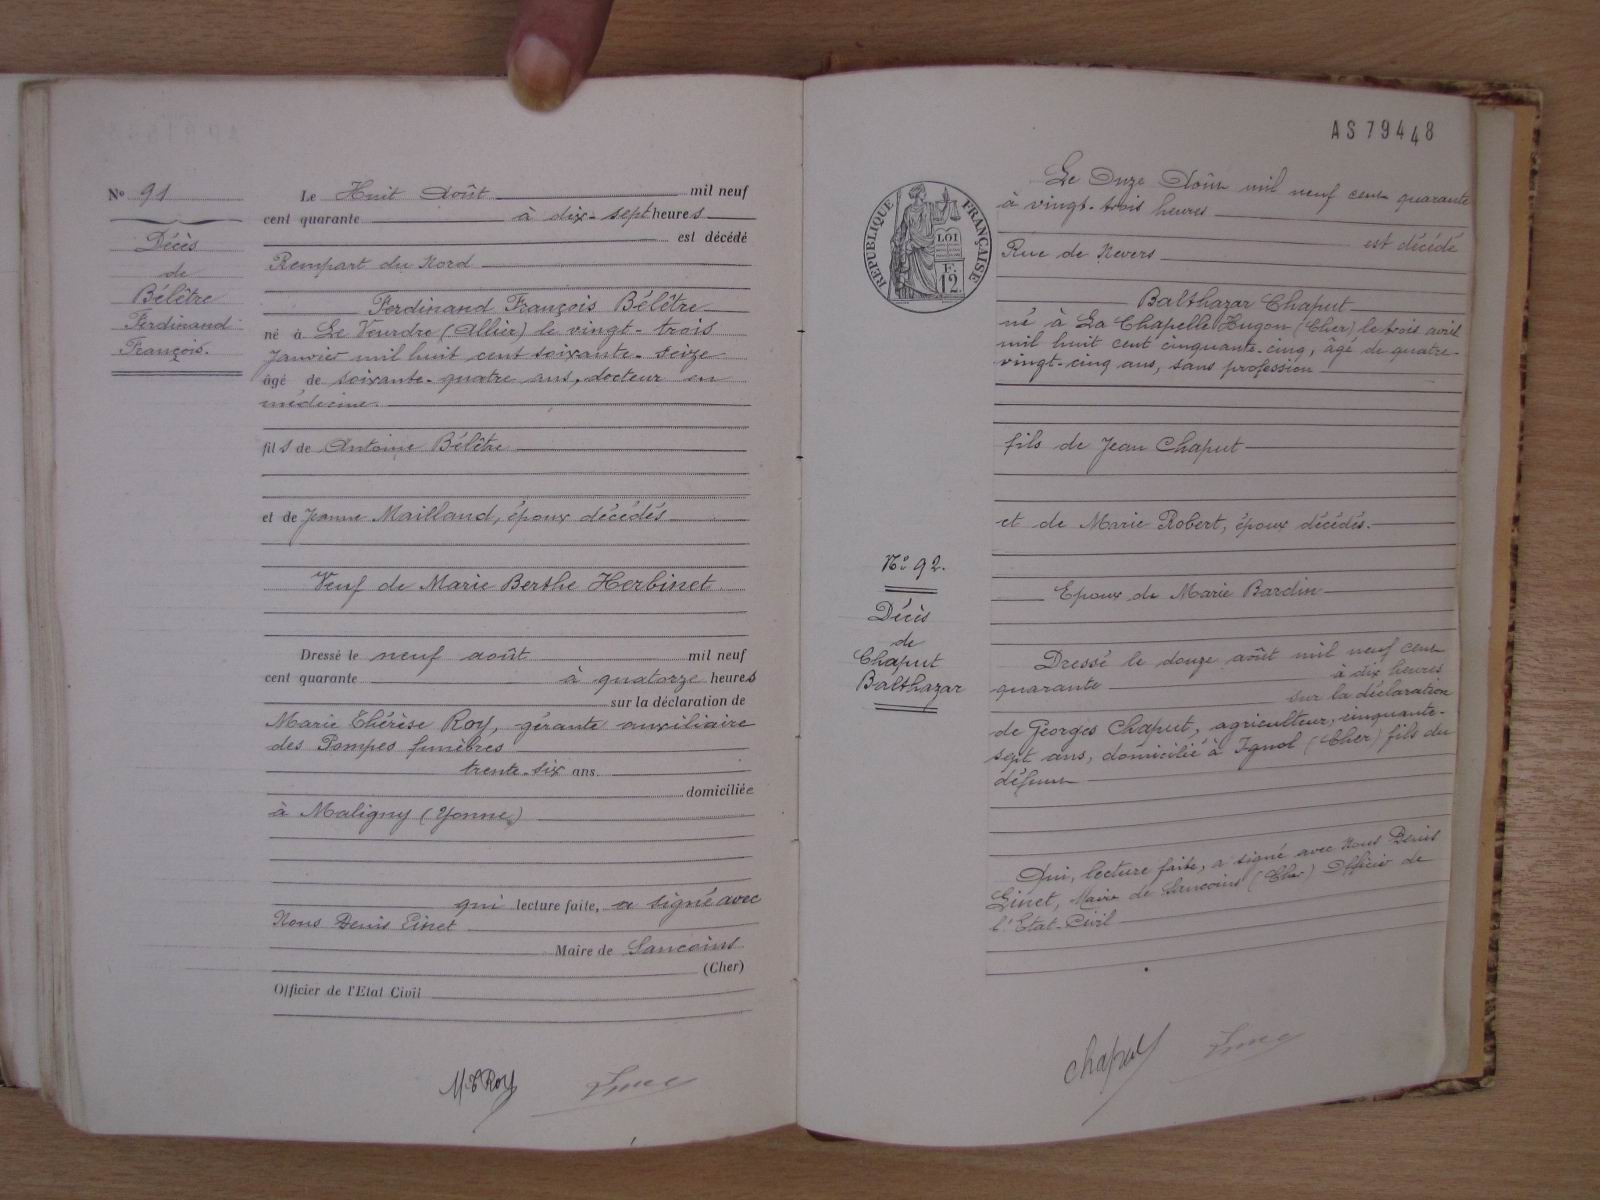 Nº 91
Décès
de
Bélêtre
Ferdinand
François.
Le Huit Août mil neuf
cent quarante à dix-sept heures
est décédé
Rempart du Nord
Ferdinand François Bélêtre
né à Le Veurdre (Allier) le vingt-trois
Janvier mil huit cent soixante-seize
âgé de soixante-quatre ans, docteur en
médecine.
fils de Antoine Bélêtre
et de Jeanne Maillaud, époux décédés
Veuf de Marie Berthe Herbinet
Dressé le neuf août mil neuf
cent quarante à quatorze heures
sur la déclaration de
Marie Thérèse Roy, gérante auxiliaire
des Pompes funèbres
trente-six ans.
domiciliée
à Maligny (Yonne)
qui lecture faite, a signé avec
Nous Denis Linet
Maire de Sancoins
(Cher)
Officier de l'Etat Civil
M T Roy
AS79448
RÉPUBLIQUE FRANÇAISE
LOI
F.
12.
Le Onze Août mil neuf cent quarante
à vingt-trois heures
est décédé
Rue de Nevers
Balthazar Chaput
né à La Chapelle Hugon (Cher) le trois avril
mil huit cent cinquante-cinq, âgé de quatre-
vingt-cinq ans, sans profession
fils de Jean Chaput
et de Marie Robert, époux décédés.
Nº 92.
Décès
de
Chaput
Balthazar
Epoux de Marie Bardin
Dressé le douze août mil neuf cent
quarante à dix heures
sur la déclaration
de Georges Chaput, agriculteur, cinquante-
sept ans, domicilié à Ignol (Cher) fils du
défunt
Qui, lecture faite, a signé avec Nous Denis
Linet, Maire de Sancoins (Cher) Officier de
l'Etat-Civil
Chaput